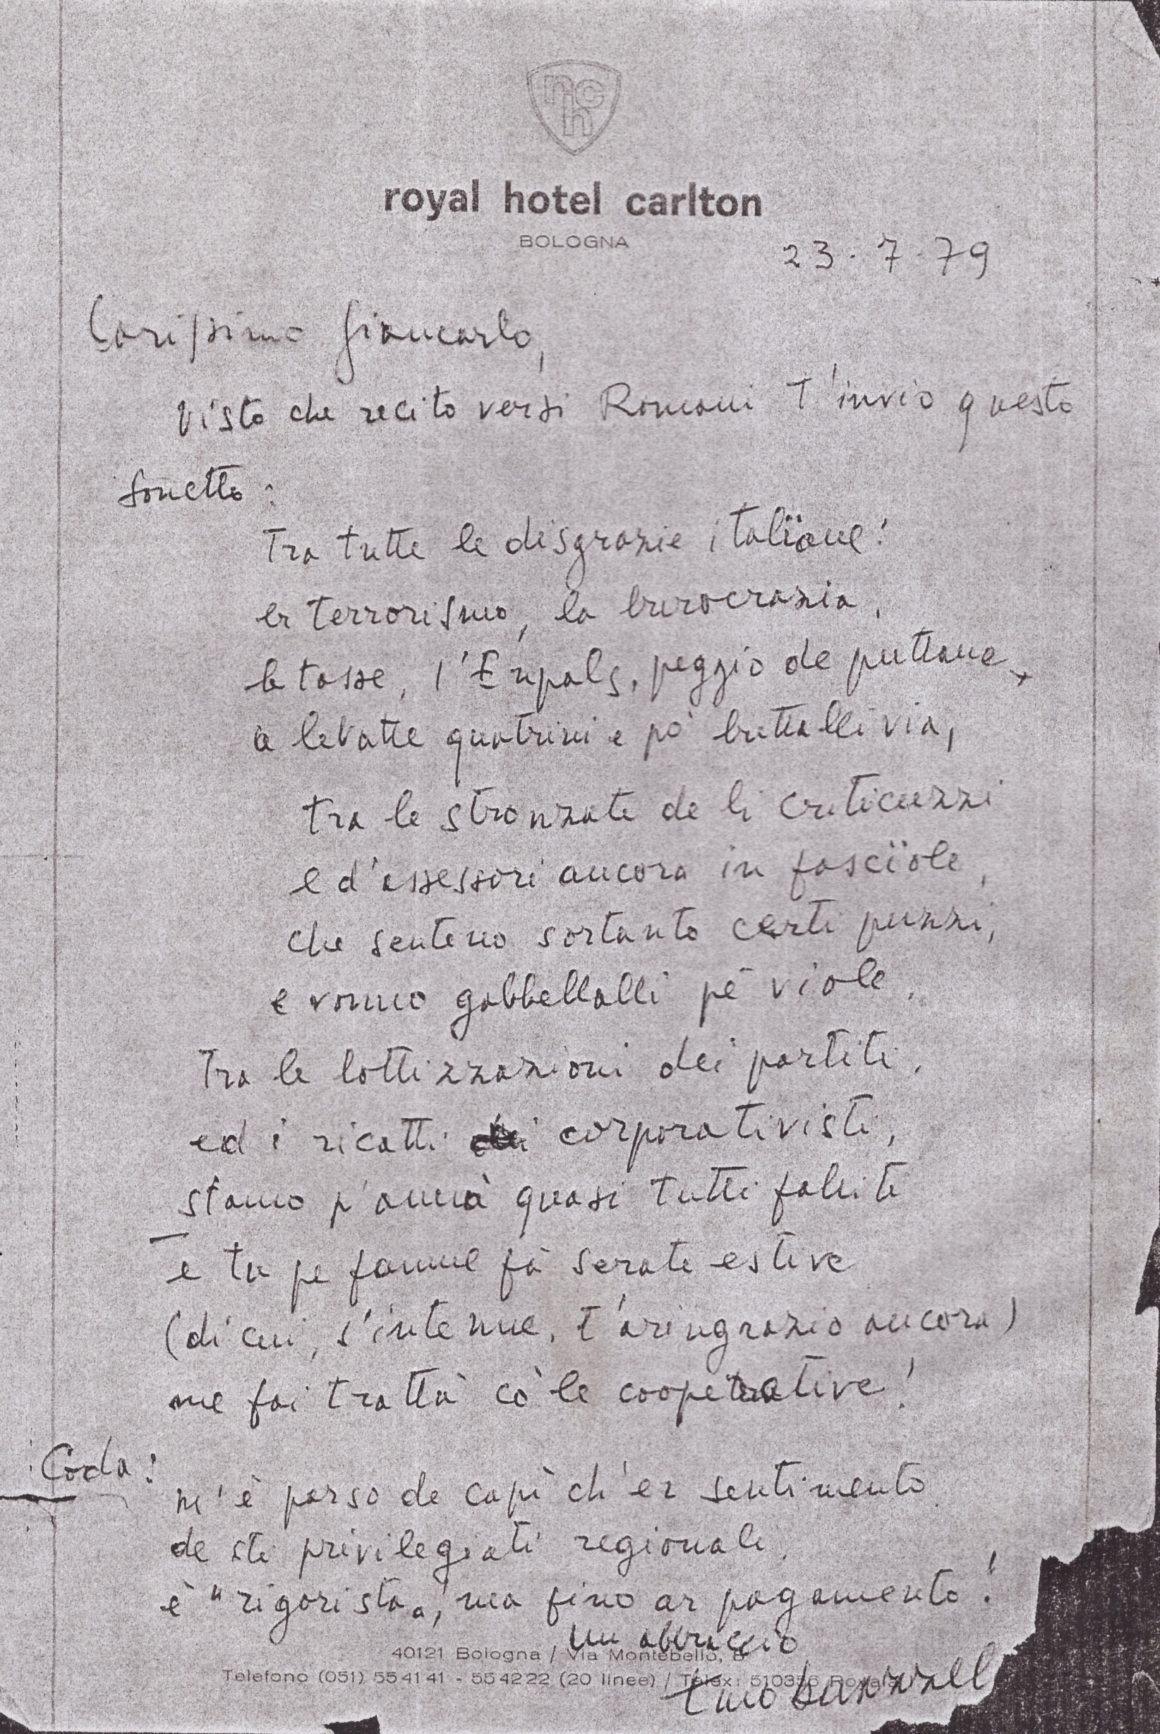 nch
royal hotel carlton
BOLOGNA
23 - 7 - 79
Carissimo Giancarlo,
Visto che recito versi Romani T'invio questo
sonetto:
Tra tutte le disgrazie italïane:
er terrorismo, la burocrazia,
le tasse, l'Enpals, peggio de puttane,
a levatte quatrini e pò buttalli via,
tra le stronzate de li criticuzzi
e d'assessori ancora in fascïole,
che senteno sortanto certi puzzi,
e vonno gabbellalli pe' viole.
Tra le lottizzazioni dei partiti,
ed i ricatti corporativisti,
stamo p'annà quasi tutti falliti
e tu pe famme fà serate estive
(di cui, s'intenne, t'aringrazio ancora)
me fai trattà cò le cooperative!
Coda:
M'è parso de capì ch'er sentimento
de sti privilegiati regionali,
è "rigorista", ma fino ar pagamento!
Un abbraccio
40121 Bologna / Via Montebello, 8
Telefono (051) 55 41 41 - 55 42 22 (20 linee) / Telex: 510356
Tino Buazzell